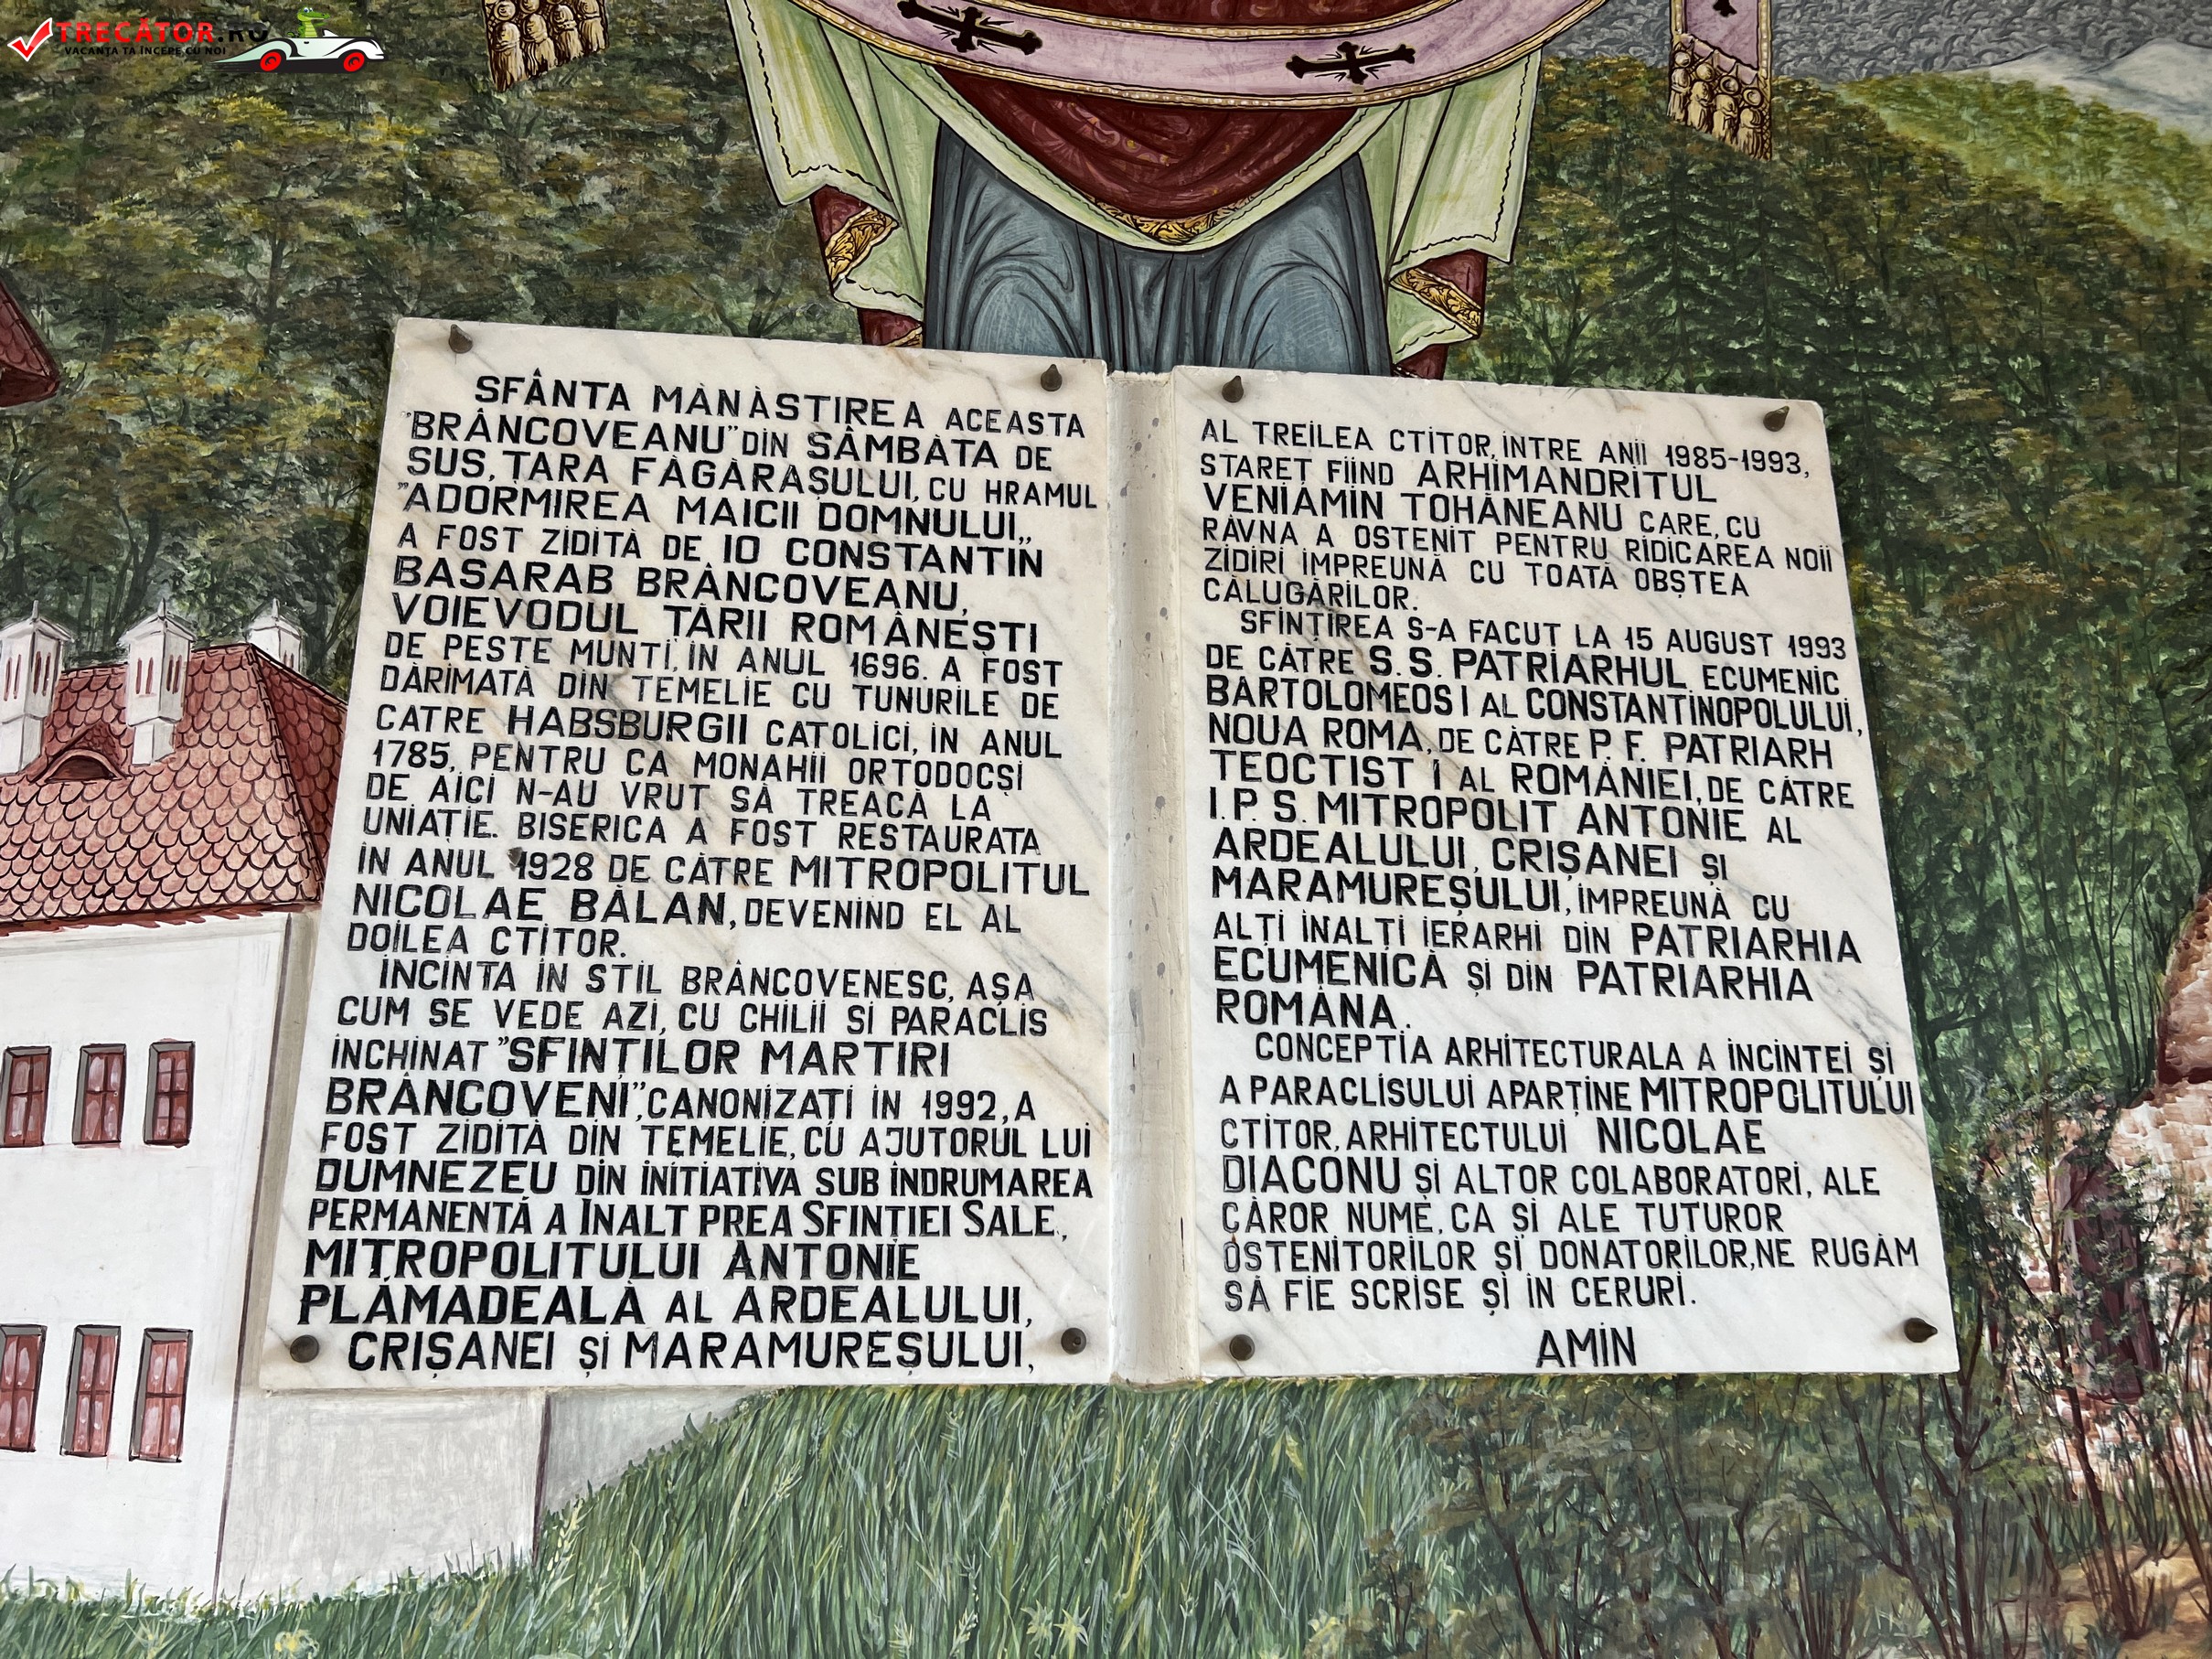 TRECĂTOR.RO
VACANȚA TA ÎNCEPE CU NOI
SFÂNTA MÀNÀSTIREA ACEASTA
"BRÂNCOVEANU" DIN SÂMBÀTA DE
SUS, ȚARA FÀGÀRAȘULUI, CU HRAMUL
"ADORMIREA MAICII DOMNULUI,,
A FOST ZIDITÀ DE IO CONSTANTIN
BASARAB BRÂNCOVEANU,
VOIEVODUL ȚÀRII ROMÂNEȘTI
DE PESTE MUNȚI, ÎN ANUL 1696. A FOST
DÀRÎMATÀ DIN TEMELIE CU TUNURILE DE
CÀTRE HABSBURGII CATOLICI, ÎN ANUL
1785, PENTRU CÀ MONAHII ORTODOCȘI
DE AICI N-AU VRUT SÀ TREACÀ LA
UNIAȚIE. BISERICA A FOST RESTAURATÀ
ÎN ANUL 1928 DE CÀTRE MITROPOLITUL
NICOLAE BÀLAN, DEVENIND EL AL
DOILEA CTITOR.
INCINTA ÎN STIL BRÂNCOVENESC, AȘA
CUM SE VEDE AZI, CU CHILII SI PARACLIS
ÎNCHINAT "SFINȚILOR MARTIRI
BRÂNCOVENI", CANONIZAȚI ÎN 1992, A
FOST ZIDITÀ DIN TEMELIE, CU AJUTORUL LUI
DUMNEZEU DIN INIȚIATIVA SUB ÎNDRUMAREA
PERMANENTÀ A ÎNALT PREA SFINȚIEI SALE,
MITROPOLITULUI ANTONIE
PLÀMADEALÀ AL ARDEALULUI,
CRIȘANEI ȘI MARAMUREȘULUI,
AL TREILEA CTITOR, ÎNTRE ANII 1985-1993,
STAREȚ FIIND ARHIMANDRITUL
VENIAMIN TOHÀNEANU CARE, CU
RÂVNÀ A OSTENIT PENTRU RIDICAREA NOII
ZIDIRI ÎMPREUNÀ CU TOATÀ OBȘTEA
CÀLUGÀRILOR.
SFINȚIREA S-A FACUT LA 15 AUGUST 1993
DE CÀTRE S.S. PATRIARHUL ECUMENIC
BARTOLOMEOS I AL CONSTANTINOPOLULUI,
NOUA ROMA, DE CÀTRE P. F. PATRIARH
TEOCTIST I AL ROMÂNIEI, DE CÀTRE
I.P. S. MITROPOLIT ANTONIE AL
ARDEALULUI, CRIȘANEI ȘI
MARAMUREȘULUI, ÎMPREUNÀ CU
ALȚI ÎNALȚI IERARHI DIN PATRIARHIA
ECUMENICÀ ȘI DIN PATRIARHIA
ROMÂNA.
CONCEPȚIA ARHITECTURALA A INCINTEI ȘI
A PARACLISULUI APARȚINE MITROPOLITULUI
CTITOR, ARHITECTULUI NICOLAE
DIACONU ȘI ALTOR COLABORATORI, ALE
CÀROR NUME, CA ȘI ALE TUTUROR
OSTENITORILOR ȘI DONATORILOR, NE RUGÀM
SÀ FIE SCRISE ȘI ÎN CERURI.
AMIN